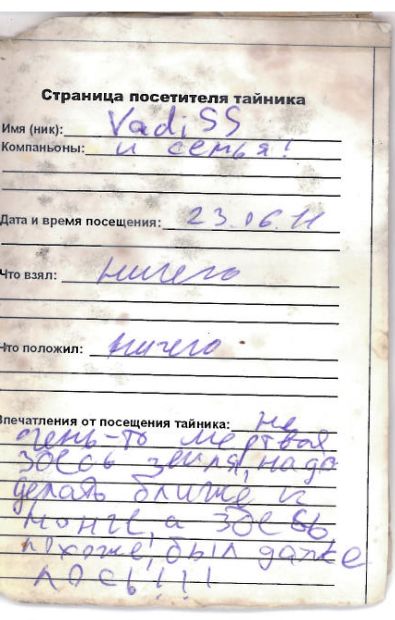 Страница посетителя тайника
Имя (ник): VadiSS
Компаньоны: и семья!
Дата и время посещения: 23.06.11
Что взял: ничего
Что положил: ничего
Впечатления от посещения тайника: не
очень-то мертвая
здесь земля, надо
делать ближе к
а здесь
похоже, был даже
лось!!!